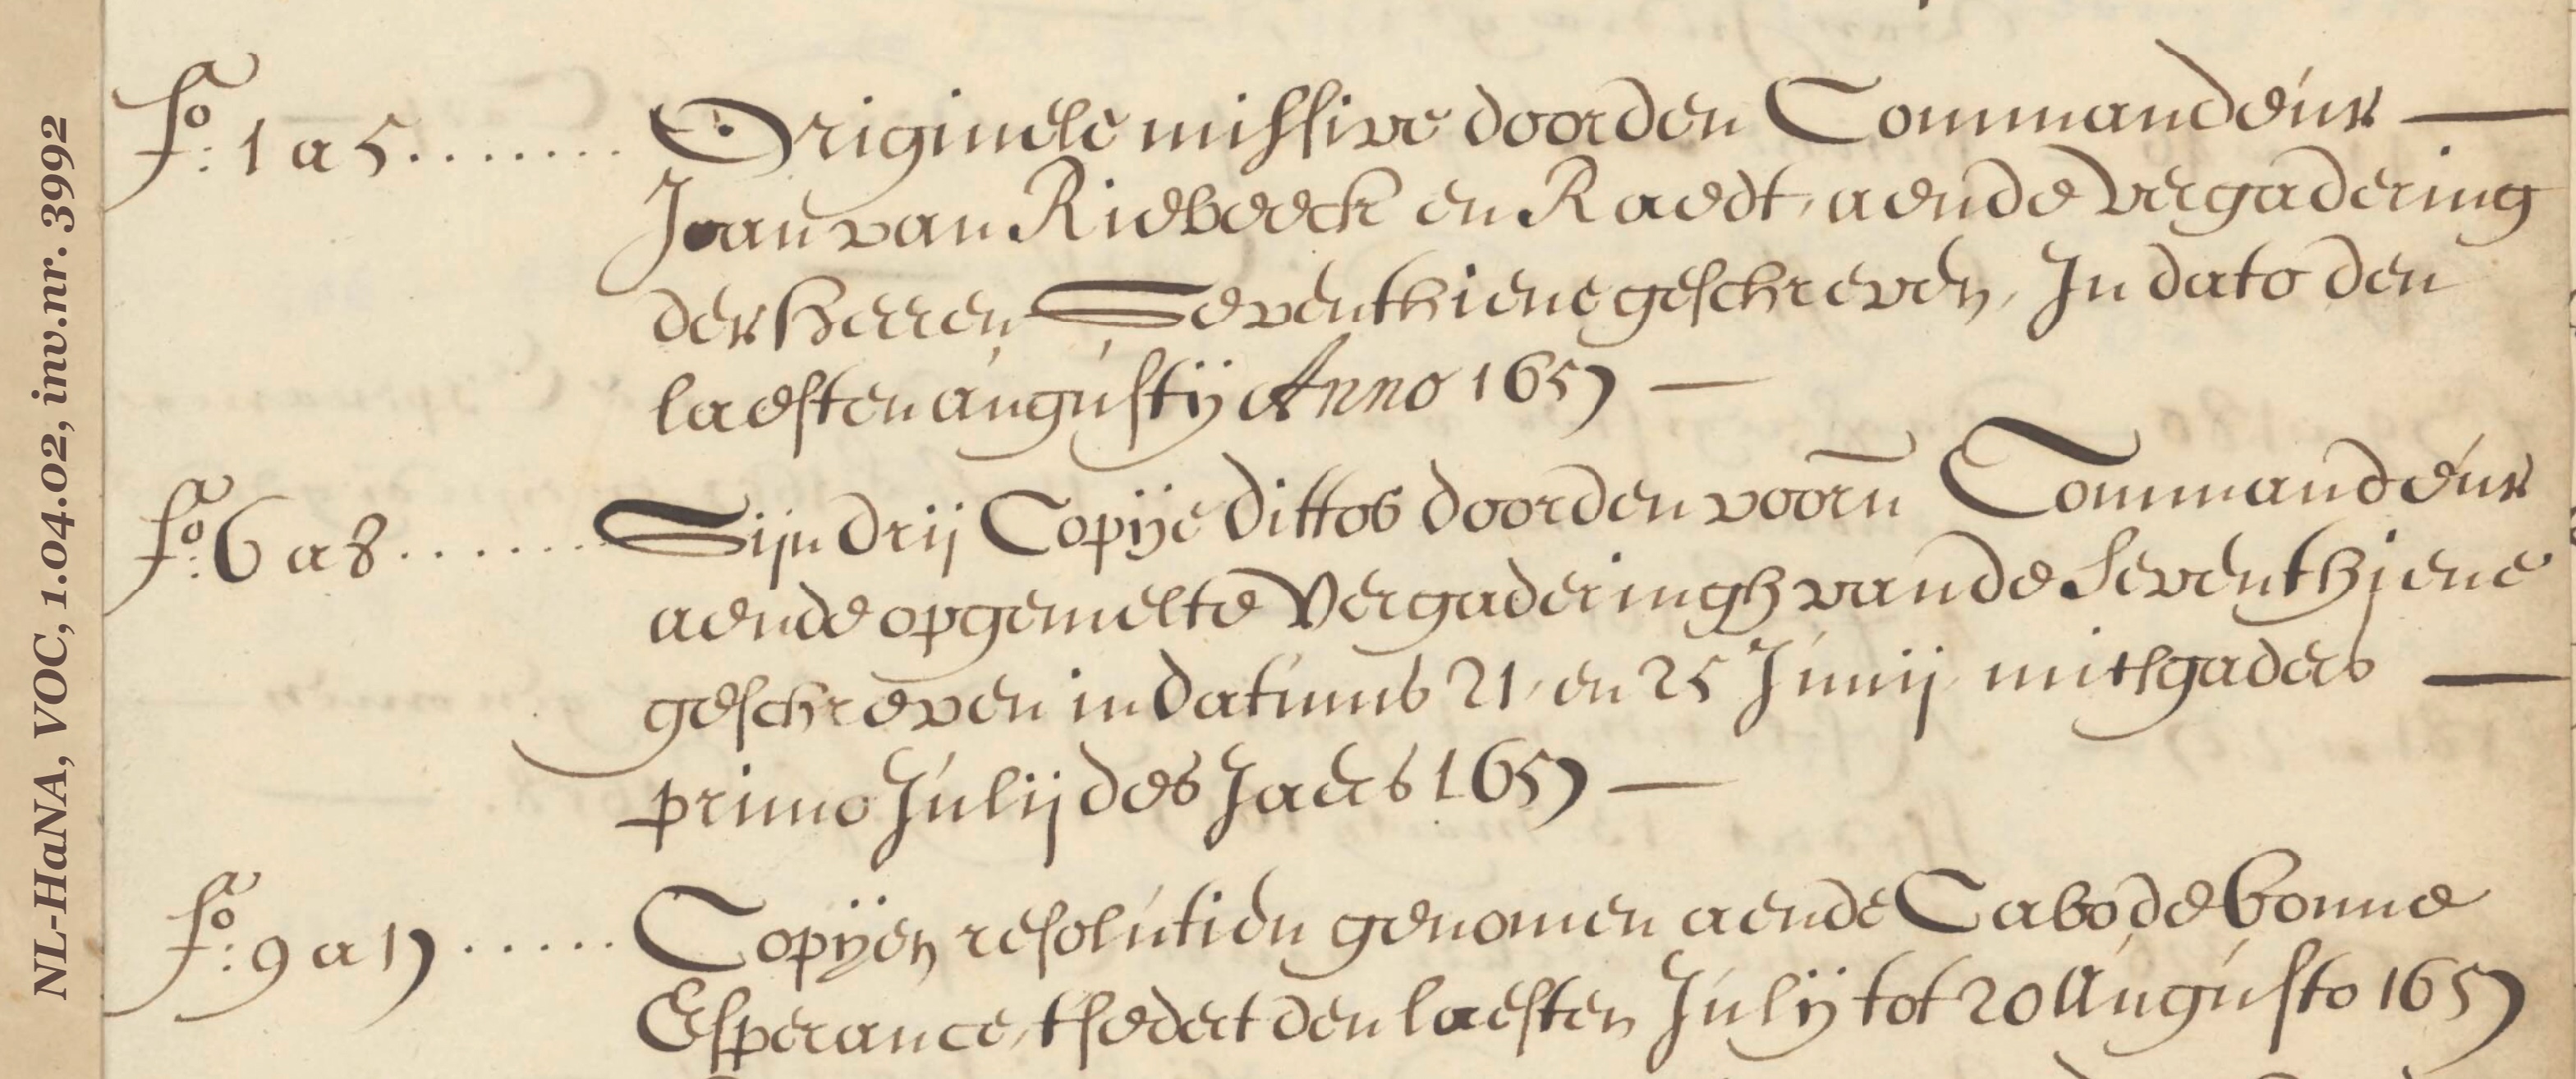 NL-HaNA, VOC, 1.04.02, inv.nr. 3992
fo: 1 a 5........ Originele missive door den Commandeur —
Joan van Riebeeck en Raedt, aende vergadering
der Heeren Seventhiene geschreven, In dato den
laesten augustij Anno 1657 —
fo: 6 a 8....... Sijn drij Copije dittos door den voorn̄ Commandeur
aende opgemelte Vergaderingh vande Seventhiene
geschreven in datums 21, en 25 Junij mitsgaders —
primo Julij des Jaers 1657 —
fo: 9 a 17...... Copijen resolutien genomen aende Cabo de bonne
Esperance, tsedert den laesten Julij tot 20 Augusto 1657